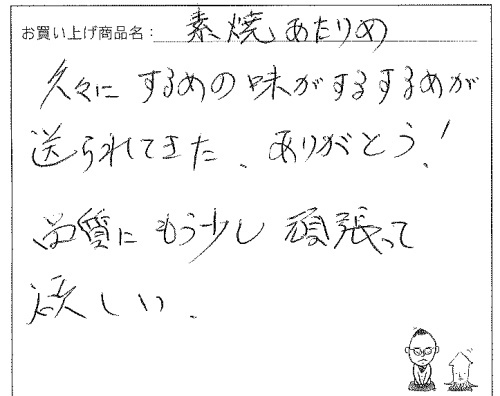 お買い上げ商品名： 素焼あたりめ
久々に するめの味がするするめが
送られてきた、ありがとう！
品質にもう少し 頑張って
欲しい、